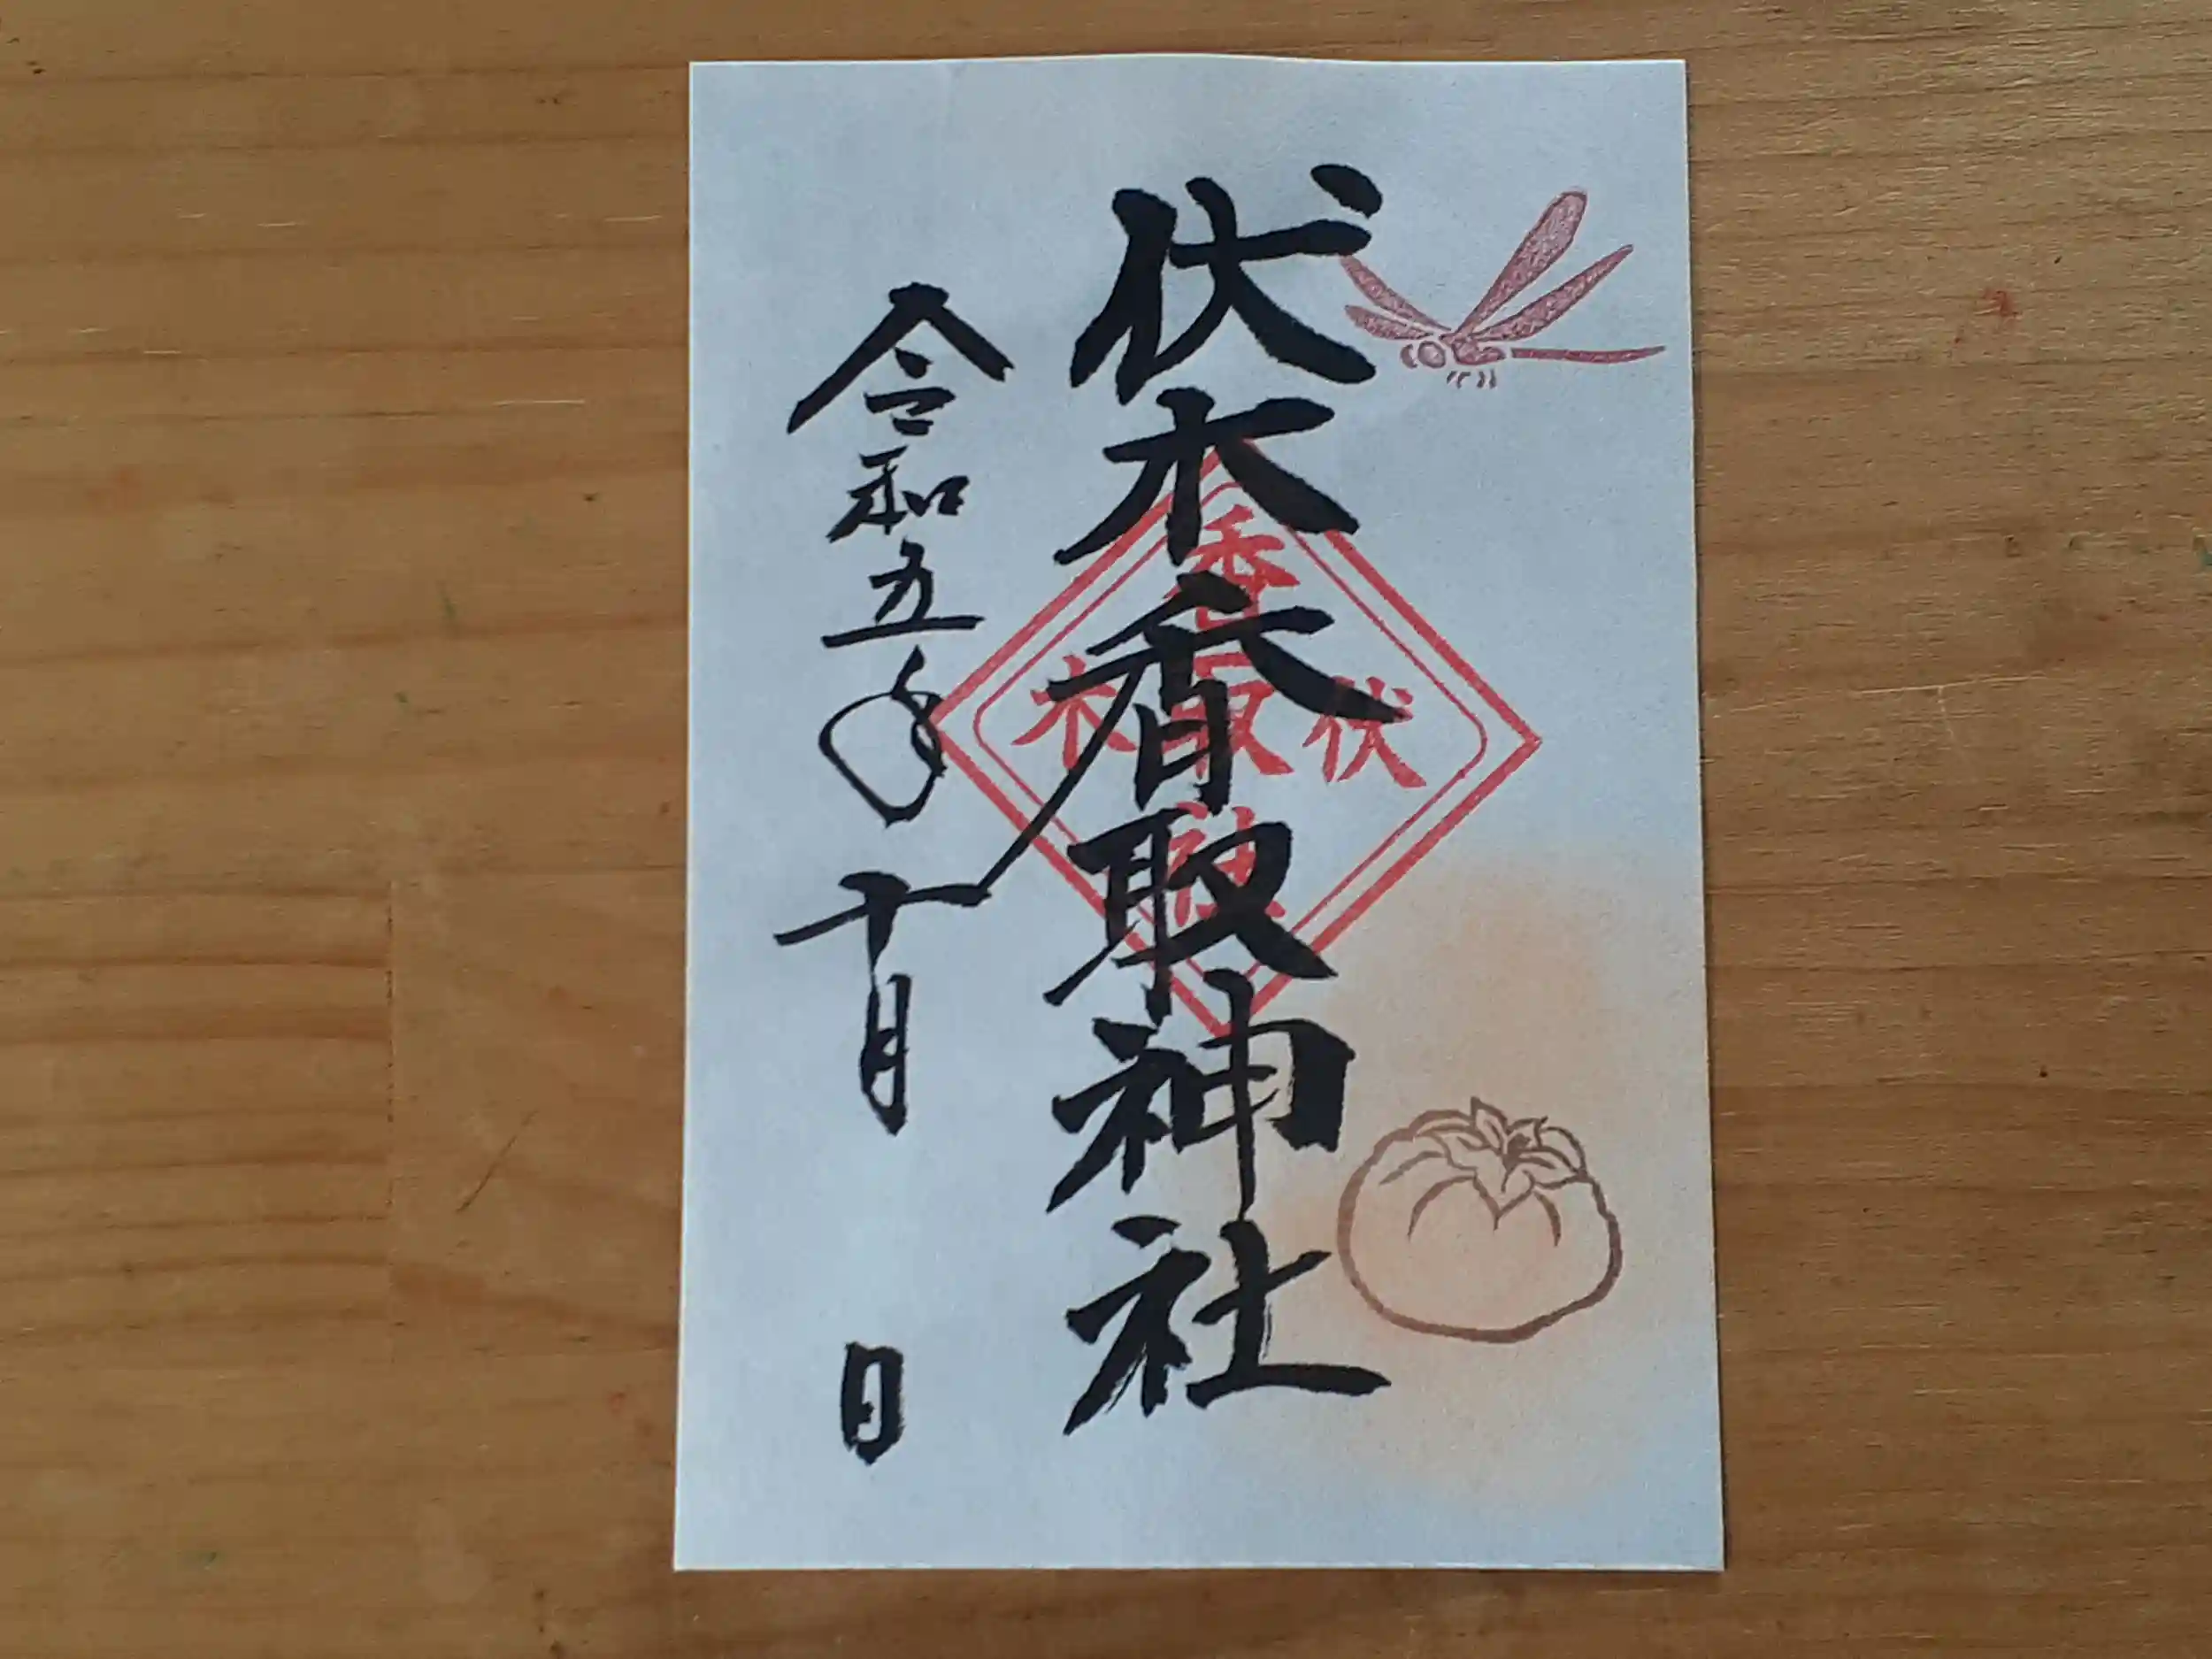 伏木香取神社
令和五年十月 日
香取社
伏木